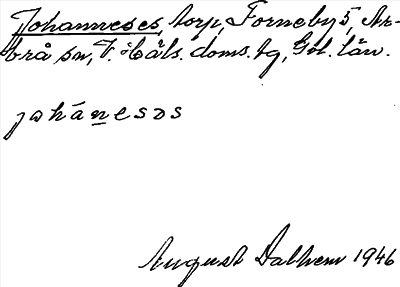 Johanneses, torp, Forneby 5, Ar-
brå sn, V. Häls. doms. tg, Gvl. län.
johánesɷs
August Dalhem 1946